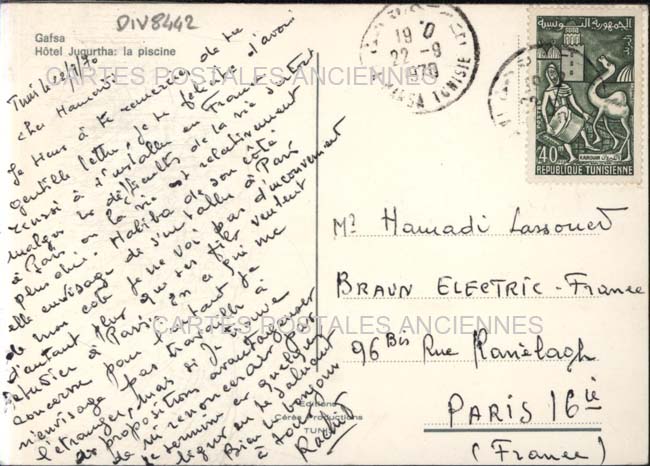 DIV8442
Gafsa
Hôtel Jugurtha: la piscine
Tunis le 22/9/70
Cher Hamadi
Je tiens à te remercier de ta
gentille lettre, je te félicite d'avoir
réussi à t'installer en France
malgré les difficultés de la vie surtout
à Paris où la vie est relativement
plus chère. Habiba de son côté
elle envisage de s'installer à Paris
de mon côté je ne vois pas d'inconvenient
d'autant plus que ses fils veulent
étudier à Paris. En ce qui me
concerne pour l'instant je
n'envisage pas travailler à
l'étranger, mais si je trouve
des propositions avantageuses
je termine en quelques
lignes en te saluant
Bien le bonjour
à tous
Rachid
Editions
Cérès Productions
TUNIS
19 0
22 -9
1970
GAFSA TUNISIE
الجمهورية التونسية
40
KAIROUAN القيروان
REPUBLIQUE TUNISIENNE
Mr Hamadi Lassoued
BRAUN ELECTRIC - France
96 Bis Rue Ranelagh
PARIS 16 iè
(France)
CARTES POSTALES ANCIENNES
CARTES POSTALES ANCIENNES